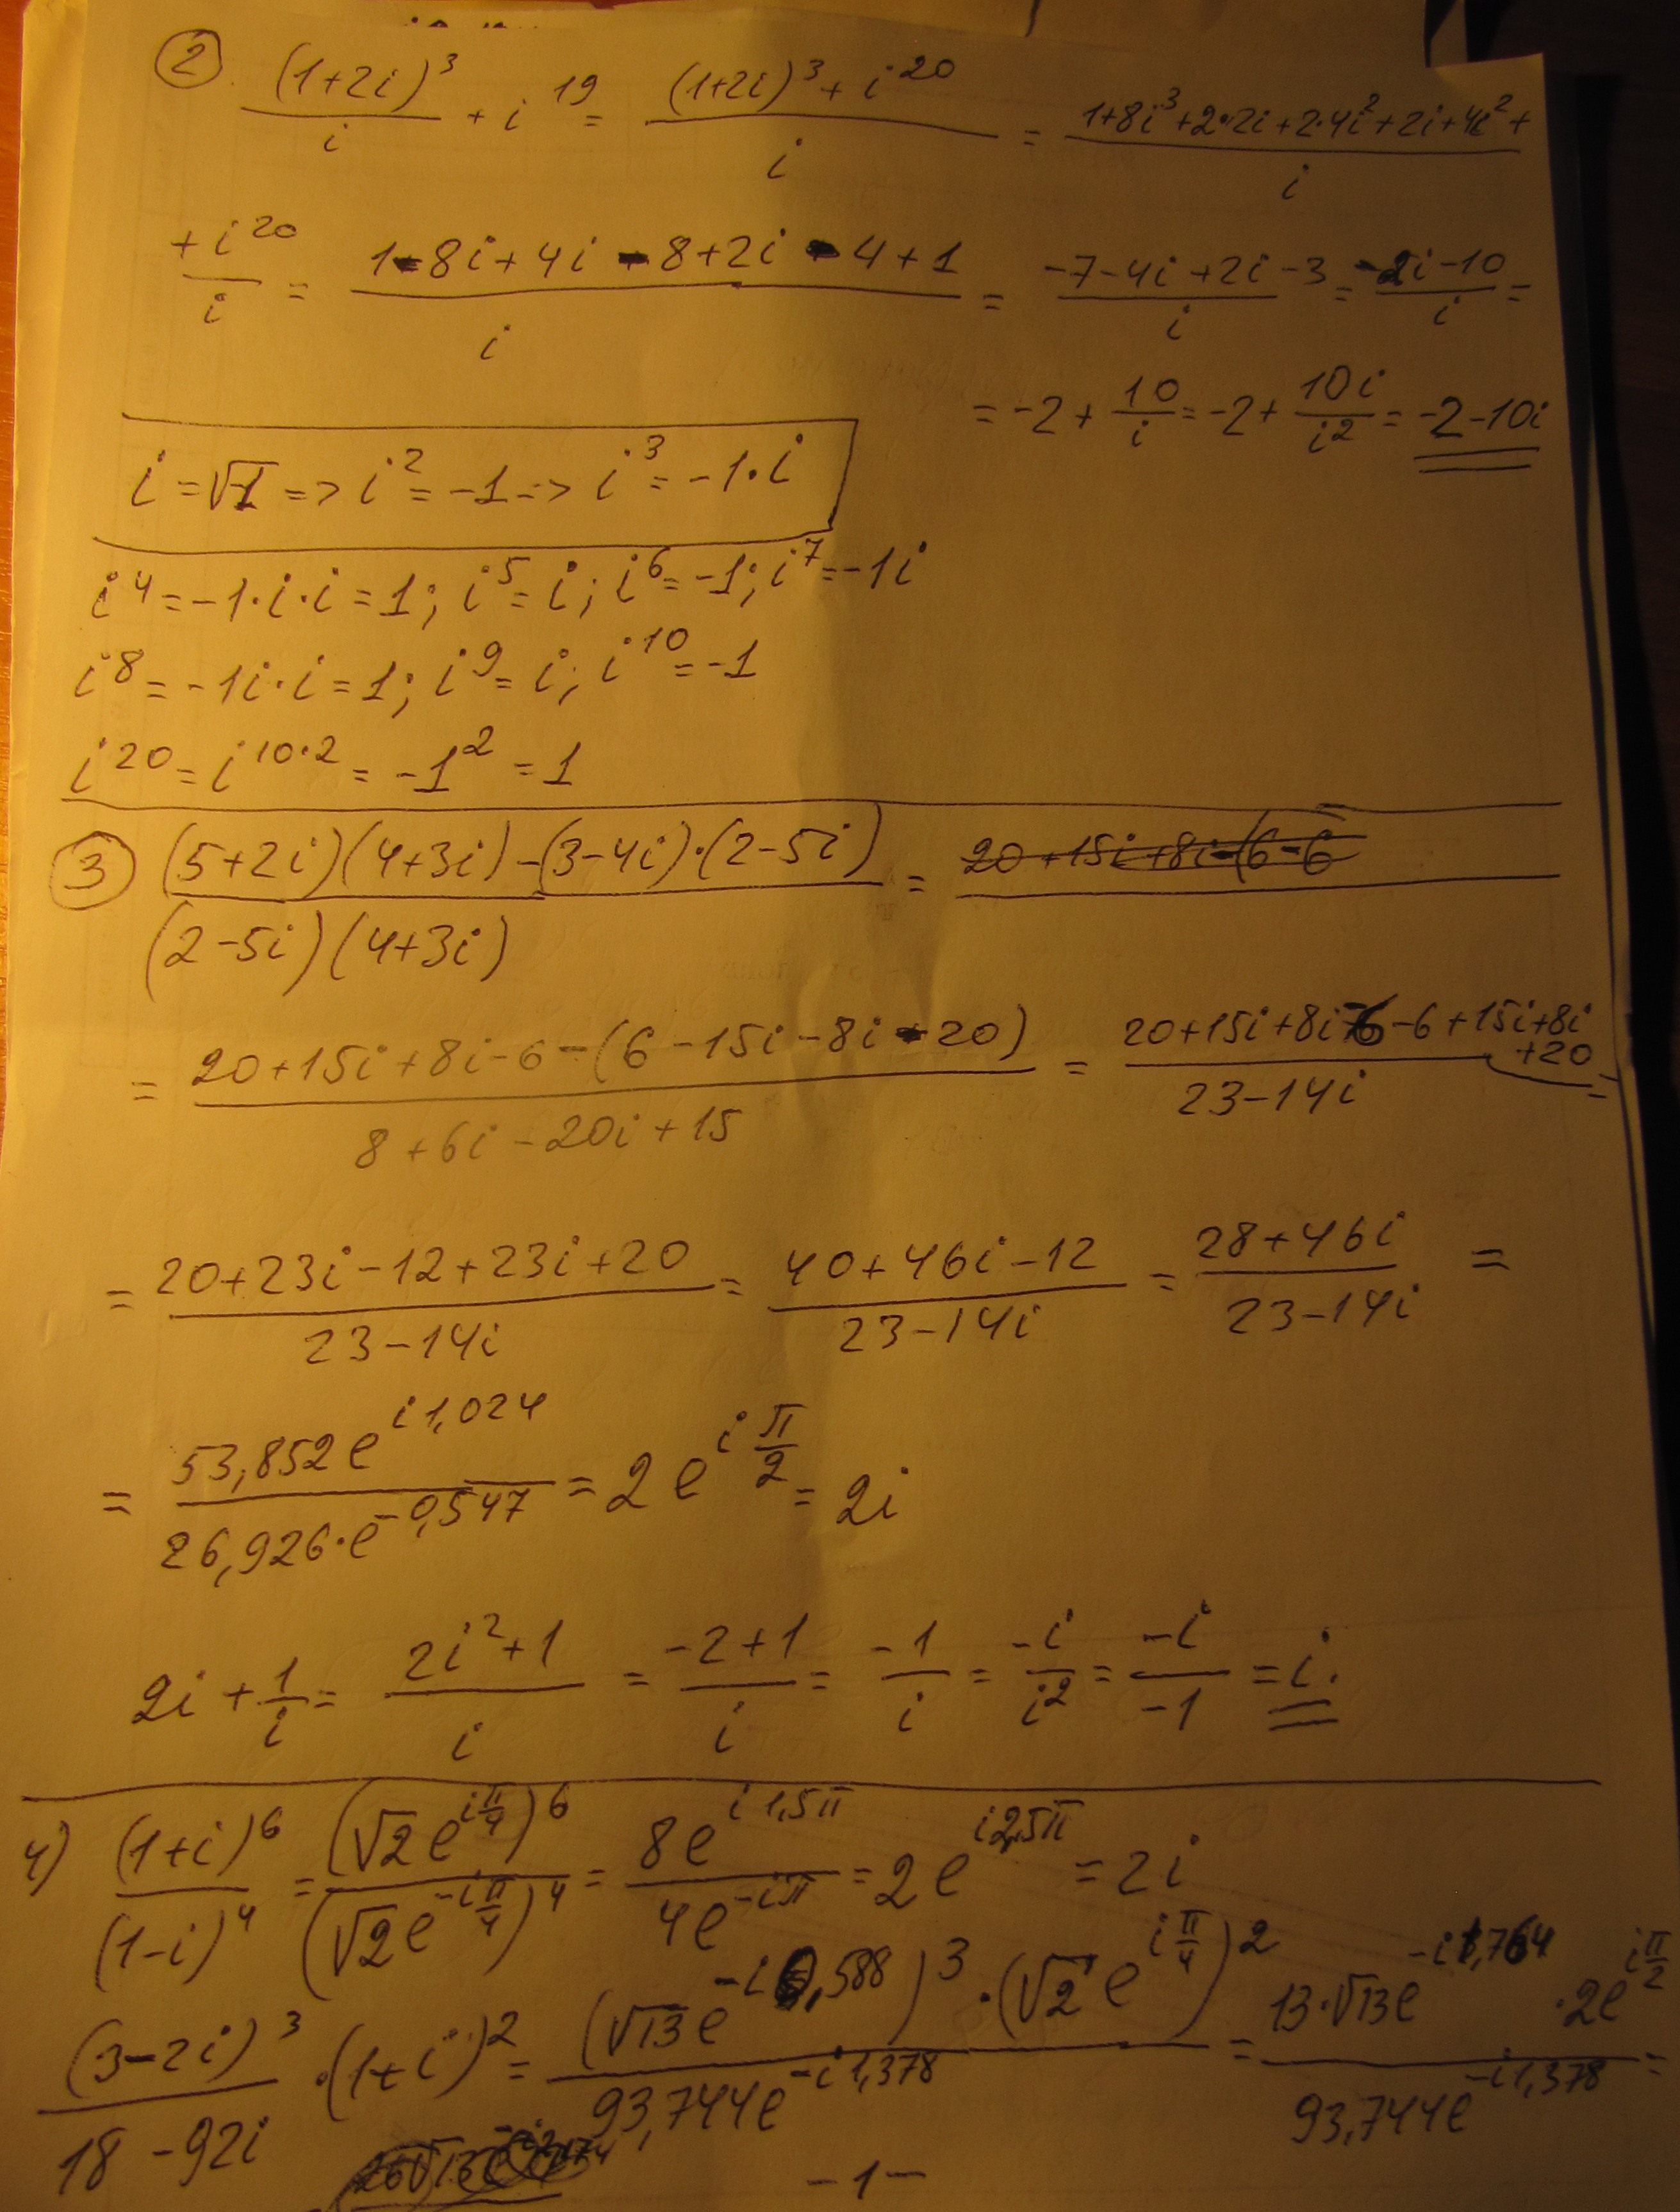 ② (1+2i)³/i + i¹⁹ = ((1+2i)³ + i²⁰)/i = (1+8i³+2·2i+2·4i²+2i+4i²+
+i²⁰)/i = (1-8i+4i-8+2i-4+1)/i = (-7-4i+2i-3)/i = (-2i-10)/i =
= -2 + 10/i = -2 + 10i/i² = -2-10i
i = √-1 => i² = -1 => i³ = -1·i
i⁴ = -1·i·i = 1; i⁵ = i; i⁶ = -1; i⁷ = -1i
i⁸ = -1i·i = 1; i⁹ = i; i¹⁰ = -1
i²⁰ = i^(10·2) = -1² = 1
③ ((5+2i)(4+3i) - (3-4i)·(2-5i))/((2-5i)(4+3i)) = 20+15i+8i-(6-6
= (20+15i+8i-6-(6-15i-8i-20))/(8+6i-20i+15) = (20+15i+8i-6-6+15i+8i+20)/(23-14i) =
= (20+23i-12+23i+20)/(23-14i) = (40+46i-12)/(23-14i) = (28+46i)/(23-14i) =
= 53,852e^(i1,024)/(26,926·e^(-0,547)) = 2e^(iπ/2) = 2i
2i + 1/i = (2i²+1)/i = (-2+1)/i = -1/i = -i/i² = -i/-1 = i.
4) (1+i)⁶/(1-i)⁴ = (√2e^(iπ/4))⁶/(√2e^(-iπ/4))⁴ = 8e^(i1,5π)/(4e^(-iπ)) = 2e^(i2,5π) = 2i
(3-2i)³/(18-92i) ·(1+i)² = (√13e^(-i0,588))³·(√2e^(iπ/4))²/(93,744e^(-i1,378)) = 13·√13e^(-i1,764)·2e^(iπ/2)/(93,744e^(-i1,378)) =
-1-